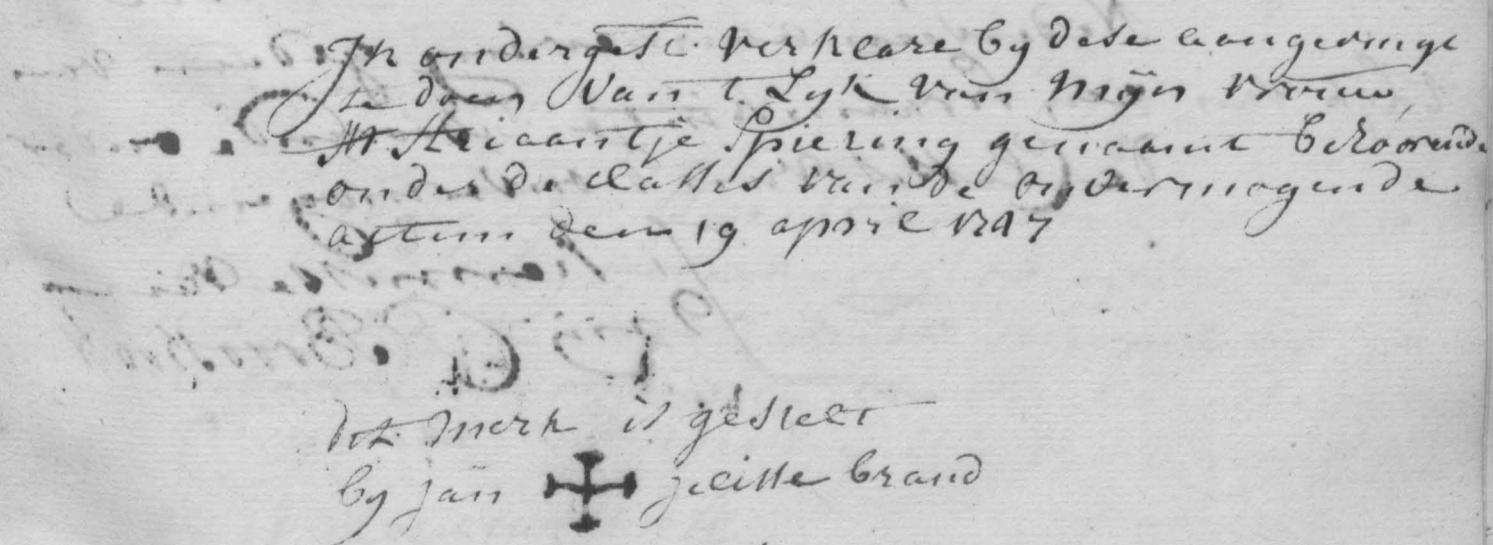 Ik ondergest. verklare by dese aangevinge
te doen Van t Lyk van Mijn vrouw
Ariaantje Spiering genaamt behoorende
onder de classes van de onvermogende
actum den 19 april 1747
dit merk is gestelt
by jan jelisse brand